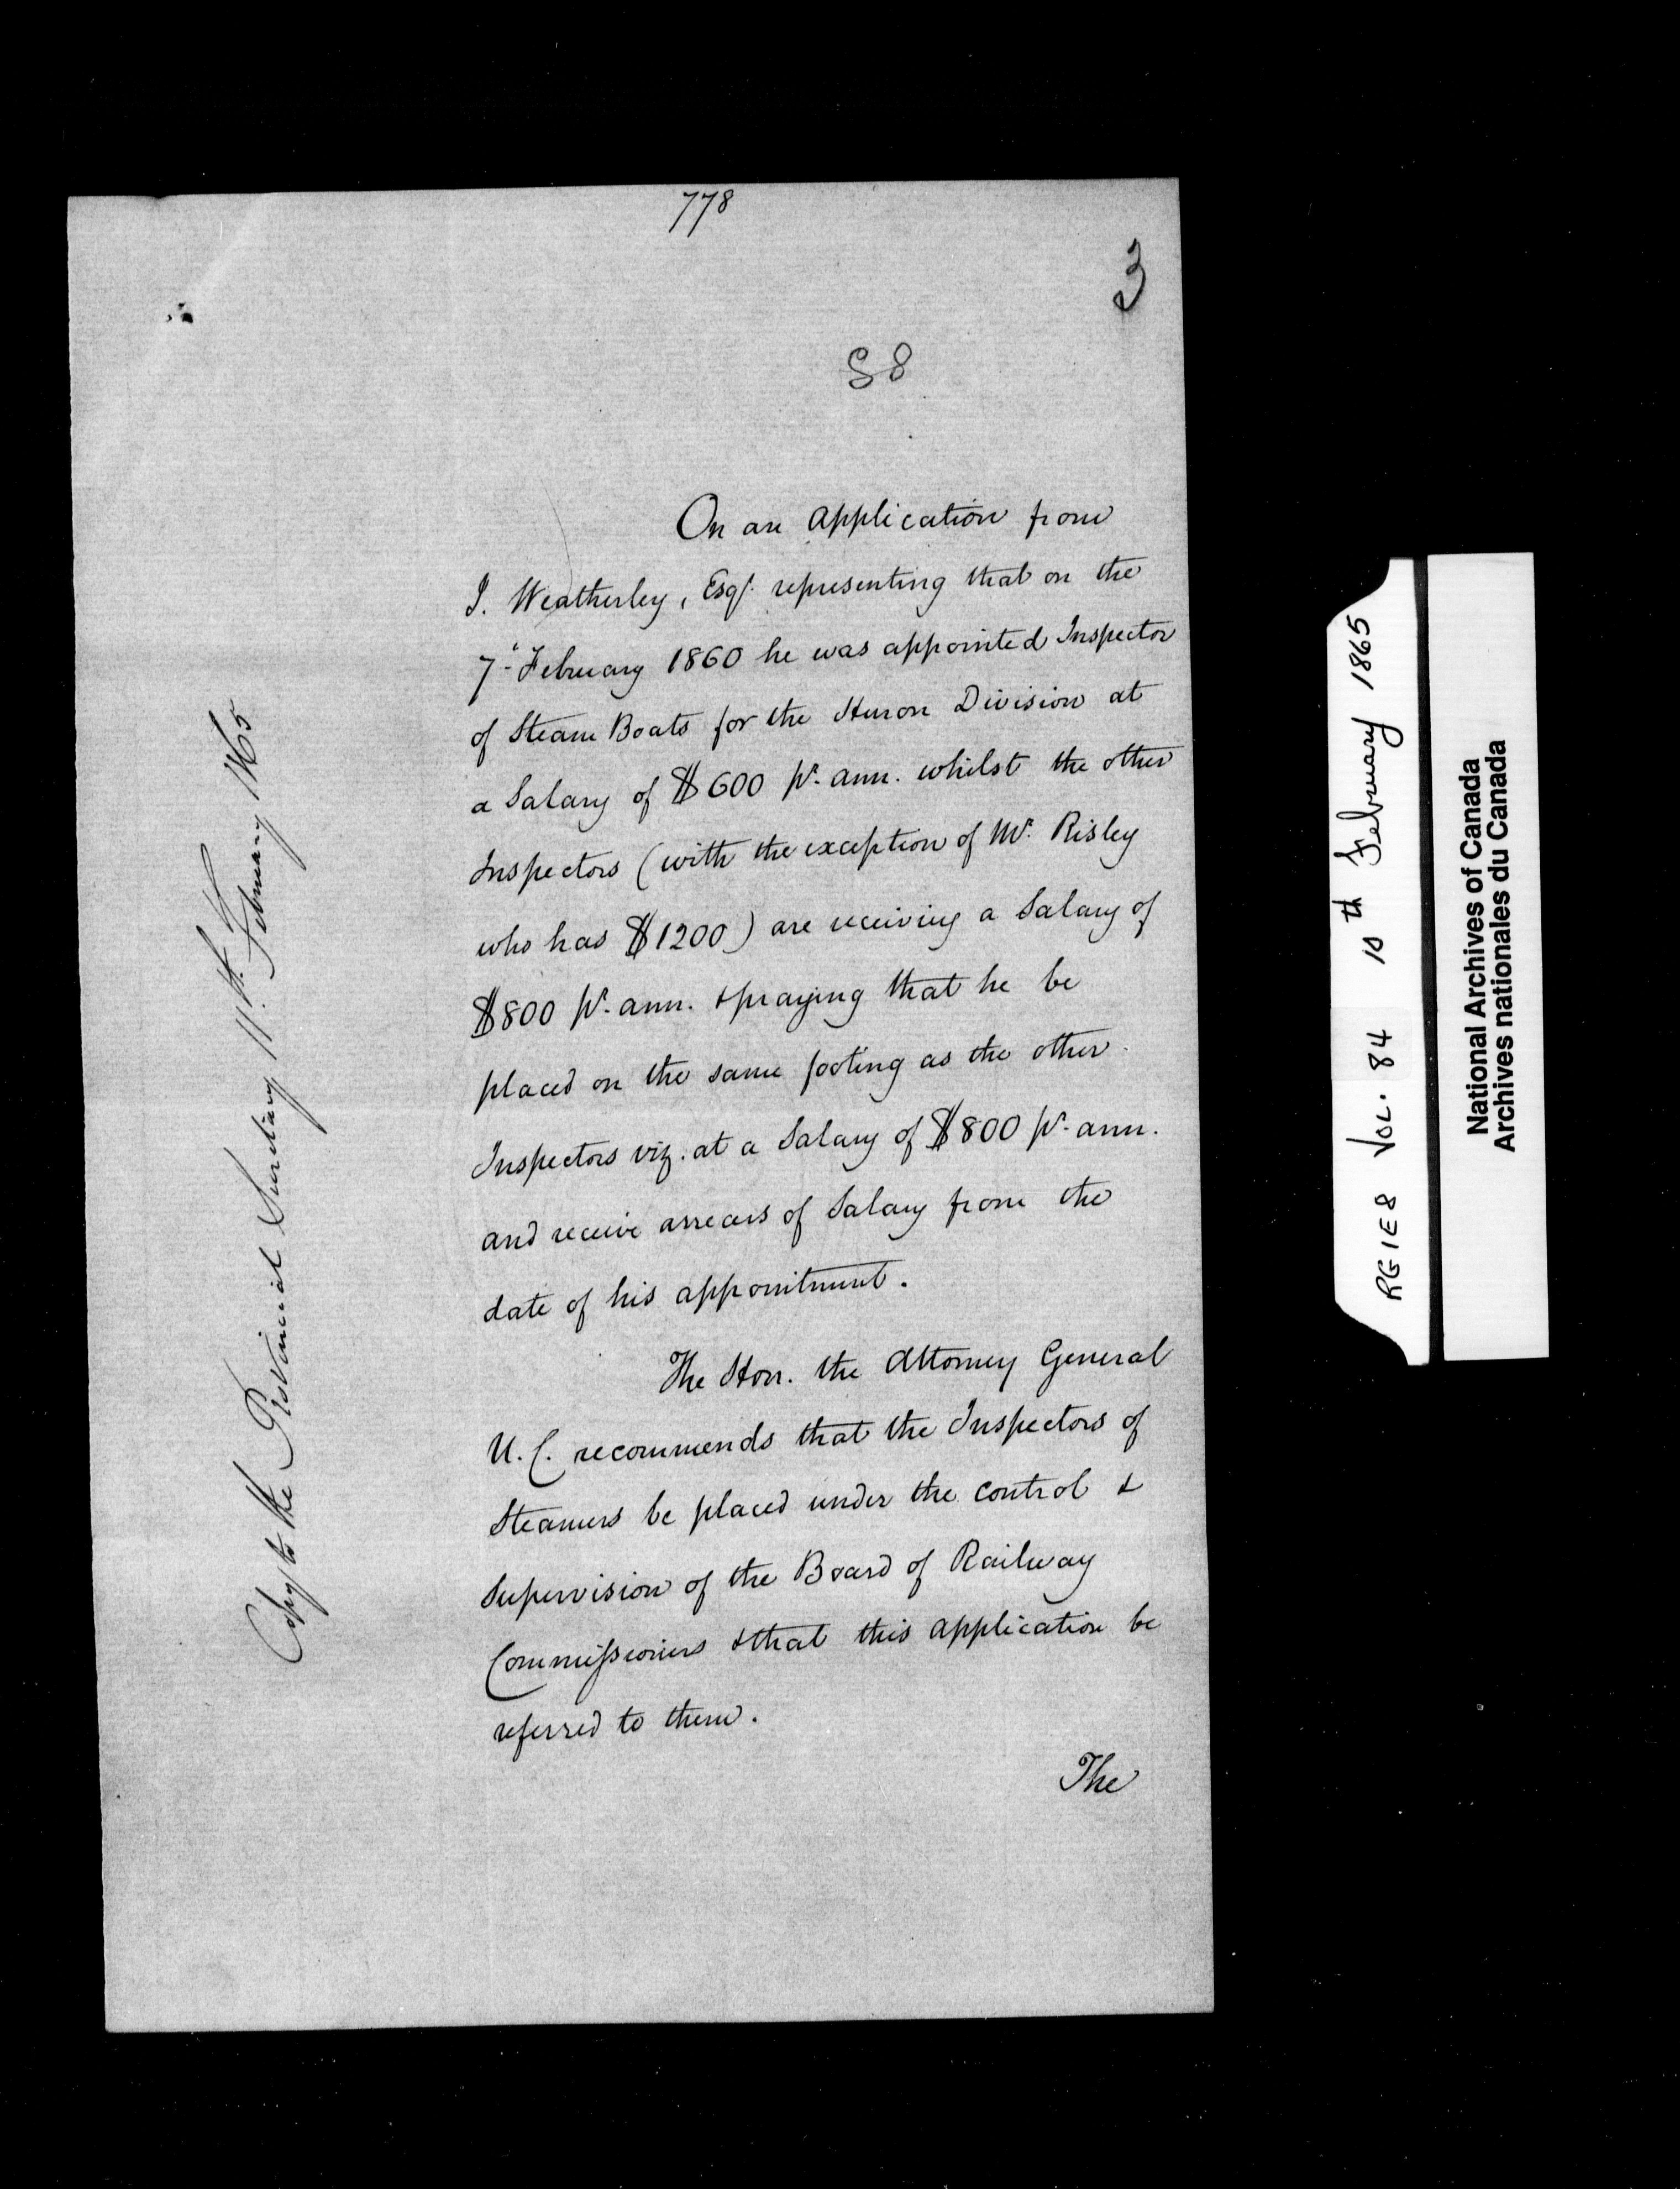 778
3
88
On an application from
J. Weatherley, Esqr. representing that on the
7th February 1860 he was appointed Inspector
of Steam Boats for the Huron Division at
a Salary of $600 pr. ann. whilst the other
Inspectors (with the exception of Mr. Risley
who has $1200) are receiving a Salary of
$800 pr. ann. & praying that he be
placed on the same footing as the other
Inspectors viz. at a Salary of $800 pr. ann.
and receive arrears of Salary from the
date of his appointment.
The Hon. the Attorney General
U.C. recommends that the Inspectors of
Steamers be placed under the control &
Supervision of the Board of Railway
Commissioners & that this application be
referred to them.
The
Copy to the Provincial Secretary 11th February 1865
RG1E8 VOL. 84 10th February 1865
National Archives of Canada
Archives nationales du Canada